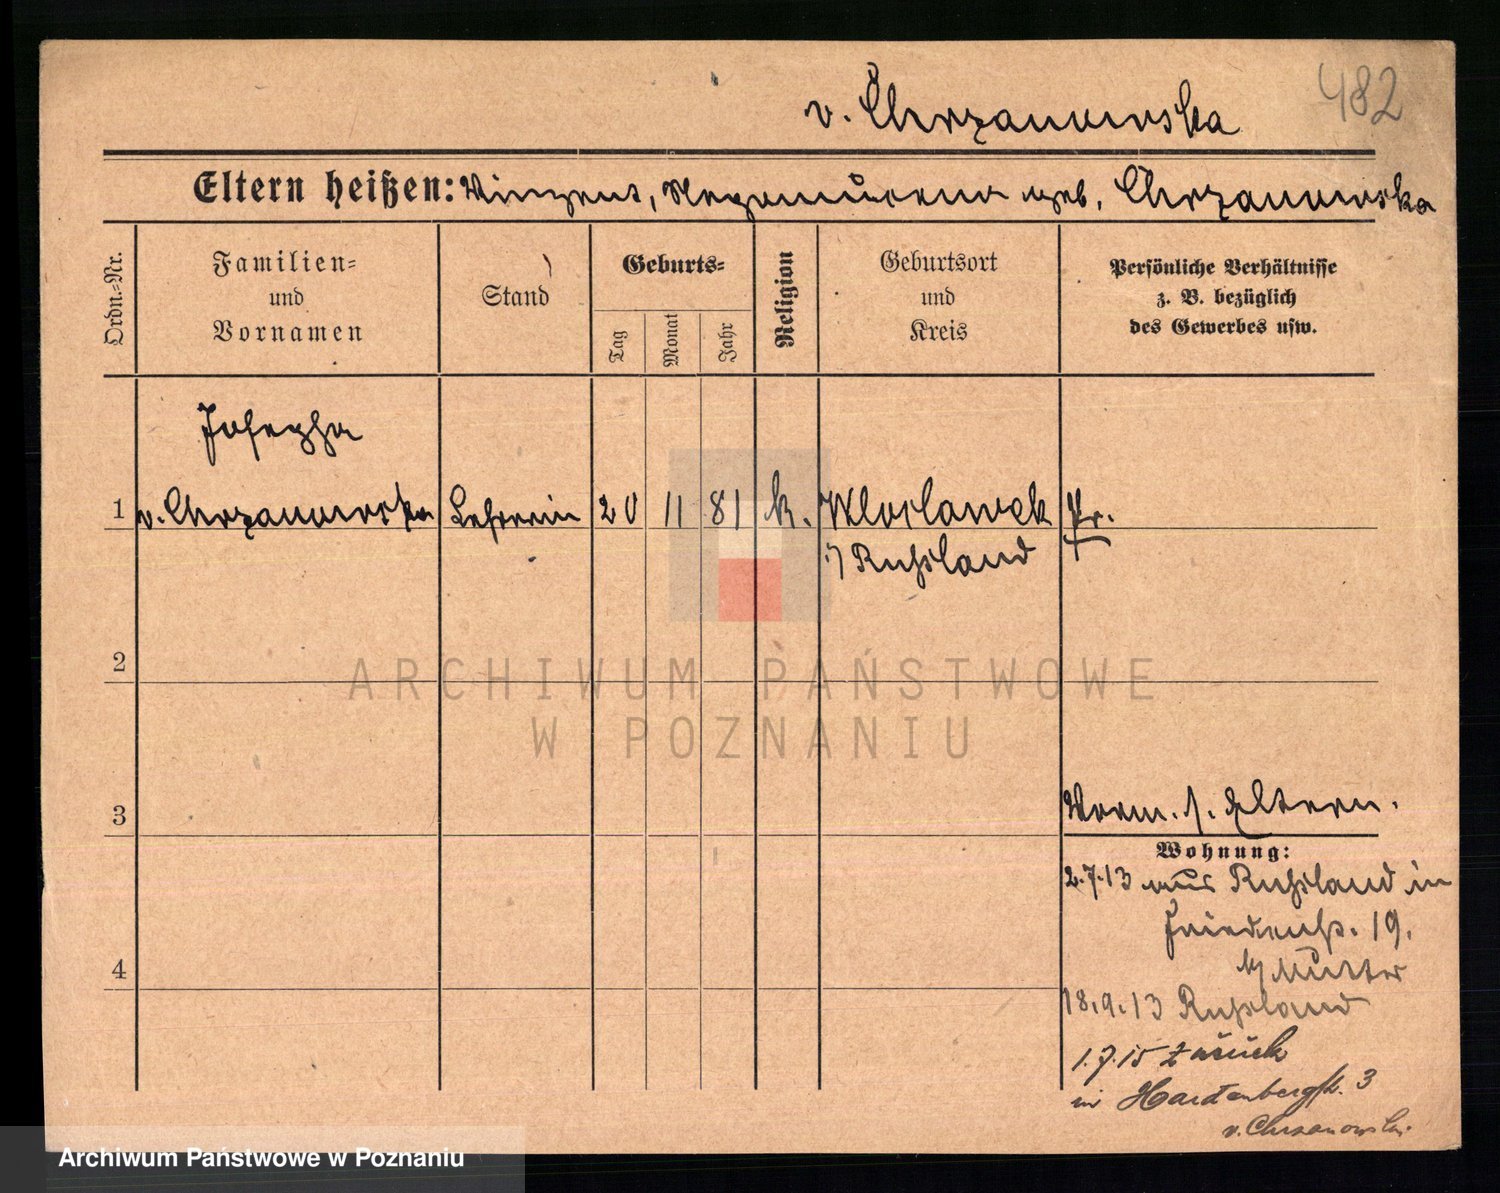 482
v. Chrzanowska
Eltern heißen: Vinzens, Nepomucena geb. Chrzanowska
Ordn.-Nr.
Familien-
und
Vornamen
Stand
Geburts-
Tag
Monat
Jahr
Religion
Geburtsort
und
Kreis
Persönliche Verhältnisse
z. B. bezüglich
des Gewerbes usw.
Josepha
1 v. Chrzanowska Lehrerin 20 11 81 k. Wloclawek Pr.
i/ Russland
2
ARCHIWUM PAŃSTWOWE
W POZNANIU
3
Verm. s. Eltern.
Wohnung:
2.7.13 aus Russland in
Friedenstr. 19.
b/ Mutter
4
18.9.13 Russland
1.7.15 zurück
in Hardenbergstr. 3
v. Chrzanowski
Archiwum Państwowe w Poznaniu